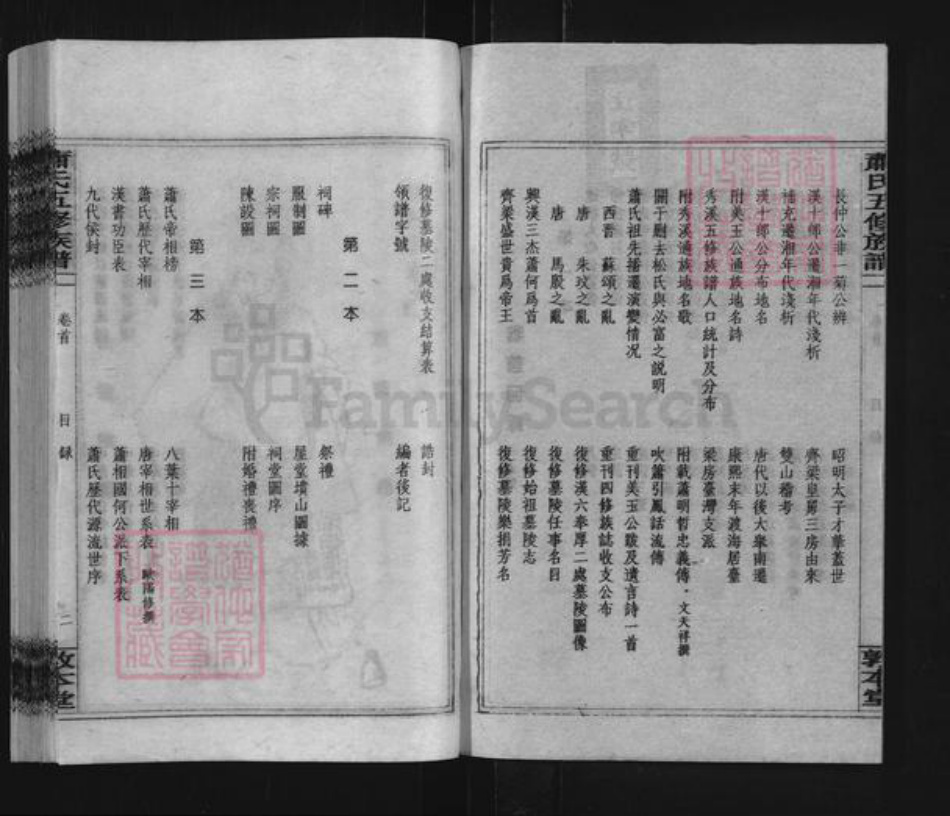 蕭氏五修族譜
長仲公非一菊公辨
漢十郎公遷湘年代淺析
補充遷湘年代淺析
漢十郎公分布地名
附美玉公通族地名詩
秀溪五修族譜人口統計及分布
附秀溪通族地名歌
關于廚去松氏與必富之說明
蕭氏祖先播遷演變情况
西晋　蘇頌之亂
唐　朱玟之亂
唐　馬殷之亂
興漢三杰蕭何爲首
齊梁盛世貴爲帝王
昭明太子才華蓋世
齊梁皇舅三房由來
雙山稽考
唐代以後大舉南遷
康熙末年渡海居臺
梁房臺灣支派
附載蕭明哲忠義傳・文天祥撰
吹簫引鳳話流傳
重刊美玉公跋及遺言詩一首
重刊四修族誌收支公布
復修漢六奉厚二處墓陵圖像
復修墓陵任事名目
復修始祖墓陵志
復修墓陵樂捐芳名
敦本堂
復修墓陵二處收支結算表
領譜字號
誥封
編者後記
第二本
祠碑
服制圖
宗祠圖
陳設圖
祭禮
屋堂墳山圖據
祠堂圖序
附婚禮喪禮
第三本
蕭氏帝相榜
蕭氏歷代宰相
漢書功臣表
九代侯封
八葉十宰相
唐宰相世系表　歐陽修撰
蕭相國何公派下系表
蕭氏歷代源流世序
蕭氏五修族譜
卷首
目錄
二
敦本堂
FamilySearch